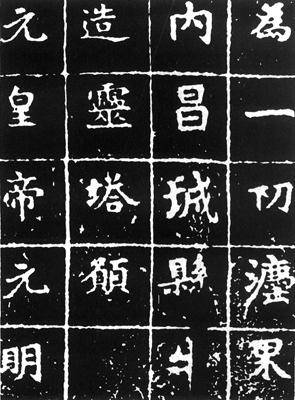 為一切果
內昌城縣
造靈塔願
元皇帝元明